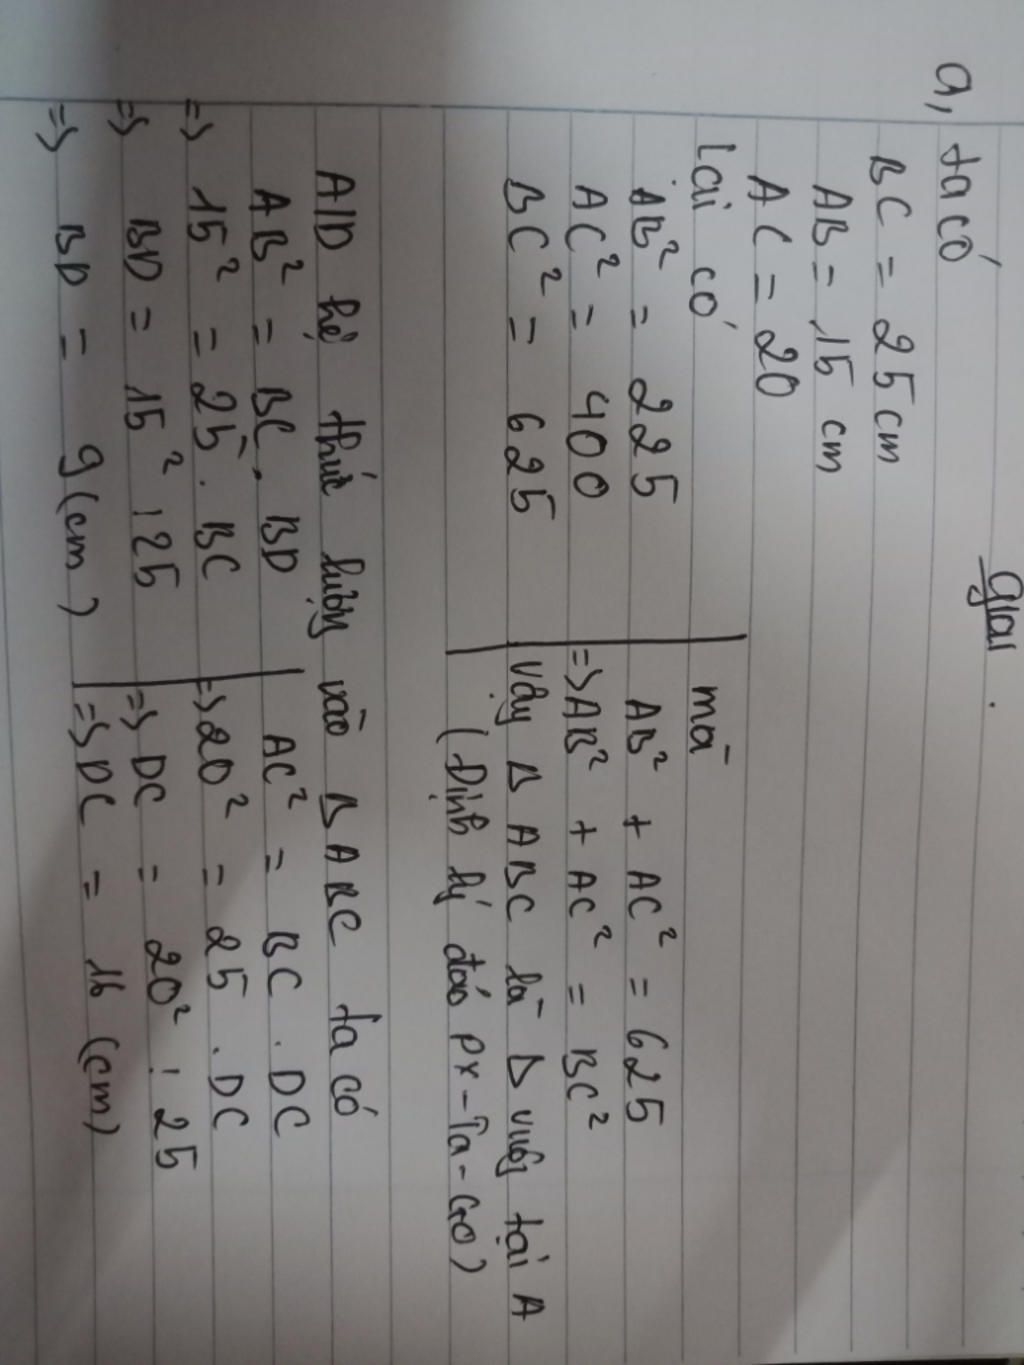 Giải
a, ta có
BC = 25cm
AB = 15 cm
AC = 20
Lại có
AB² = 225
AC² = 400
BC² = 625
mà
AB² + AC² = 625
=> AB² + AC² = BC²
vậy Δ ABC là Δ vuông tại A
(Định lý đảo Px-Ta-Go)
A/D hệ thức lượng vào Δ ABC ta có
AB² = BC. BD
=> 15² = 25. BC
=> BD = 15² : 25
=> BD = 9 (cm)
AC² = BC . DC
=> 20² = 25 . DC
=> DC = 20² : 25
=> DC = 16 (cm)